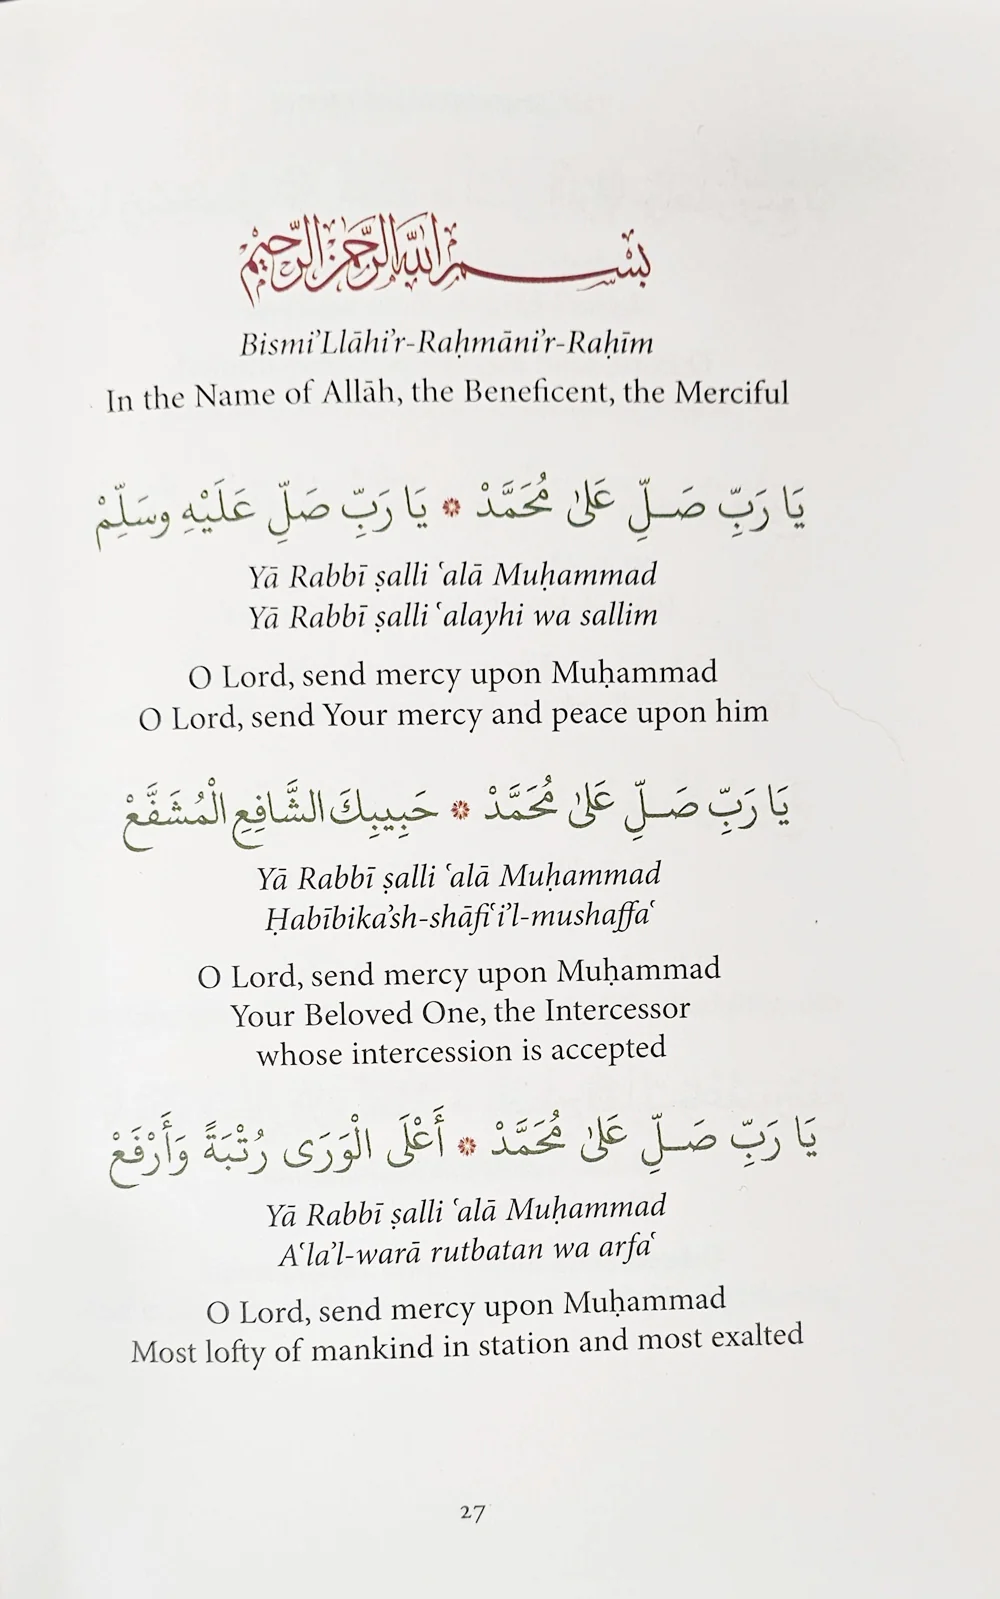 بِسْمِ اللَّهِ الرَّحْمَٰنِ الرَّحِيمِ
Bismi’Llāhi’r-Raḥmāni’r-Raḥīm
In the Name of Allāh, the Beneficent, the Merciful
يَا رَبِّ صَلِّ عَلَىٰ مُحَمَّدْ ❁ يَا رَبِّ صَلِّ عَلَيْهِ وسَلِّمْ
Yā Rabbī ṣalli ʿalā Muḥammad
Yā Rabbī ṣalli ʿalayhi wa sallim
O Lord, send mercy upon Muḥammad
O Lord, send Your mercy and peace upon him
يَا رَبِّ صَلِّ عَلَىٰ مُحَمَّدْ ❁ حَبِيبِكَ الشَّافِعِ الْمُشَفَّعْ
Yā Rabbī ṣalli ʿalā Muḥammad
Ḥabībika’sh-shāfiʿi’l-mushaffaʿ
O Lord, send mercy upon Muḥammad
Your Beloved One, the Intercessor
whose intercession is accepted
يَا رَبِّ صَلِّ عَلَىٰ مُحَمَّدْ ❁ أَعْلَى الْوَرَى رُتْبَةً وَأَرْفَعْ
Yā Rabbī ṣalli ʿalā Muḥammad
Aʿla’l-warā rutbatan wa arfaʿ
O Lord, send mercy upon Muḥammad
Most lofty of mankind in station and most exalted
27